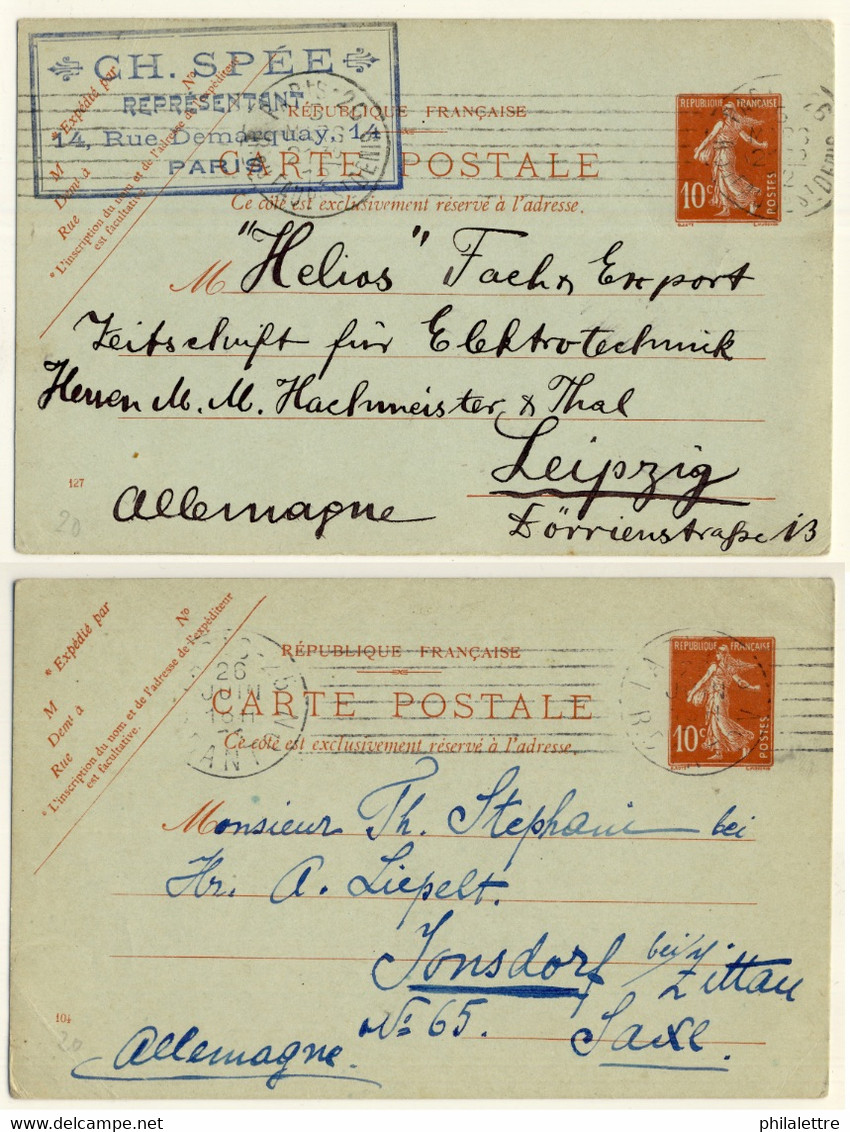 CH. SPÉE
REPRÉSENTANT
14, Rue Demarquay, 14
PARIS
Nº
* Expédié par
M
Demt à
Rue
* L'inscription du nom et de l'adresse de l'expéditeur
est facultative.
RÉPUBLIQUE FRANÇAISE
CARTE POSTALE
Ce côté est exclusivement réservé à l'adresse.
REPUBLIQUE FRANÇAISE
10c
POSTES
M "Helios" Fach & Export
Zeitschrift für Elektrotechnik
Herren M. M. Hachmeister & Thal
Leipzig
127
Allemagne
Dörrienstraße 13
20
Nº
* Expédié par
M
Demt à
Rue
* L'inscription du nom et de l'adresse de l'expéditeur
est facultative.
26
JUIN
RÉPUBLIQUE FRANÇAISE
CARTE POSTALE
Ce côté est exclusivement réservé à l'adresse.
REPUBLIQUE FRANÇAISE
10c
POSTES
Monsieur Th. Stephani bei
Hr. A. Liepelt.
Jonsdorf bei/ Zittau
104
No 65. Saxe.
20
Allemagne.
philalettre